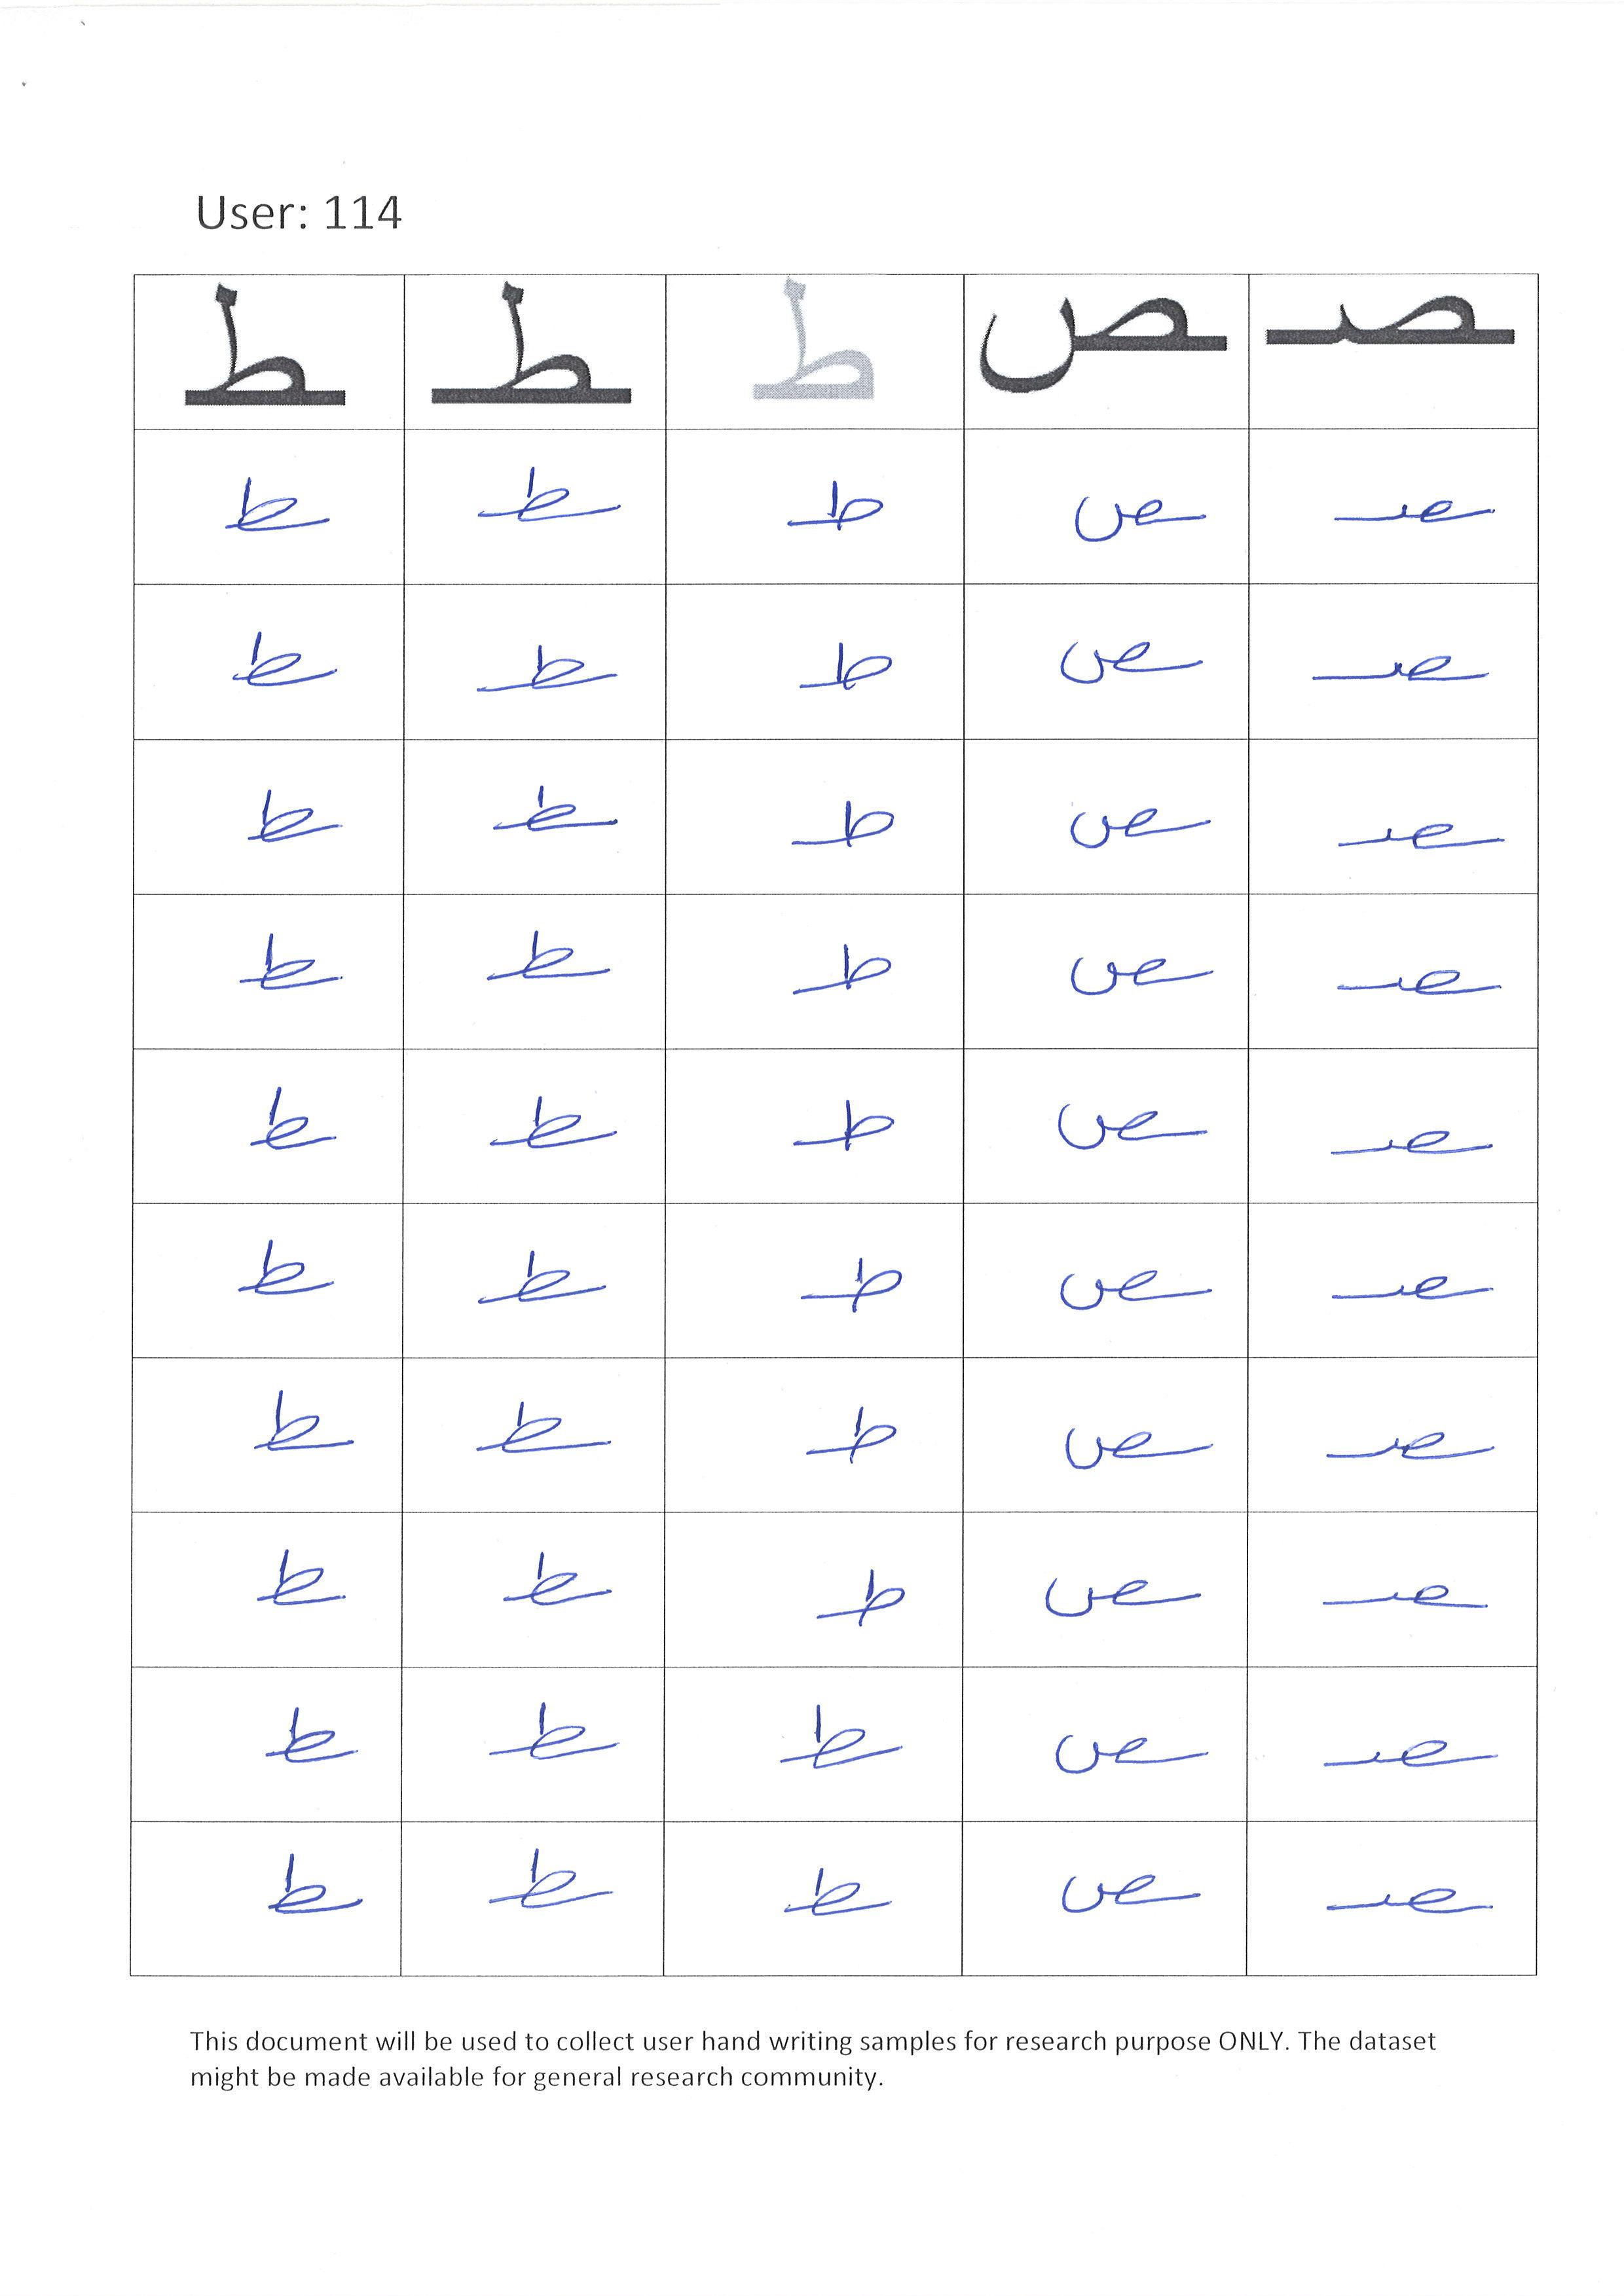 User: 114
ـط ـطـ ط ـص ـصـ
ـط ـطـ ط ـص ـصـ
ـط ـطـ ط ـص ـصـ
ـط ـطـ ط ـص ـصـ
ـط ـطـ ط ـص ـصـ
ـط ـطـ ط ـص ـصـ
ـط ـطـ ط ـص ـصـ
ـط ـطـ ط ـص ـصـ
ـط ـطـ ط ـص ـصـ
ـط ـطـ ط ـص ـصـ
ـط ـطـ ط ـص ـصـ
This document will be used to collect user hand writing samples for research purpose ONLY. The dataset
might be made available for general research community.